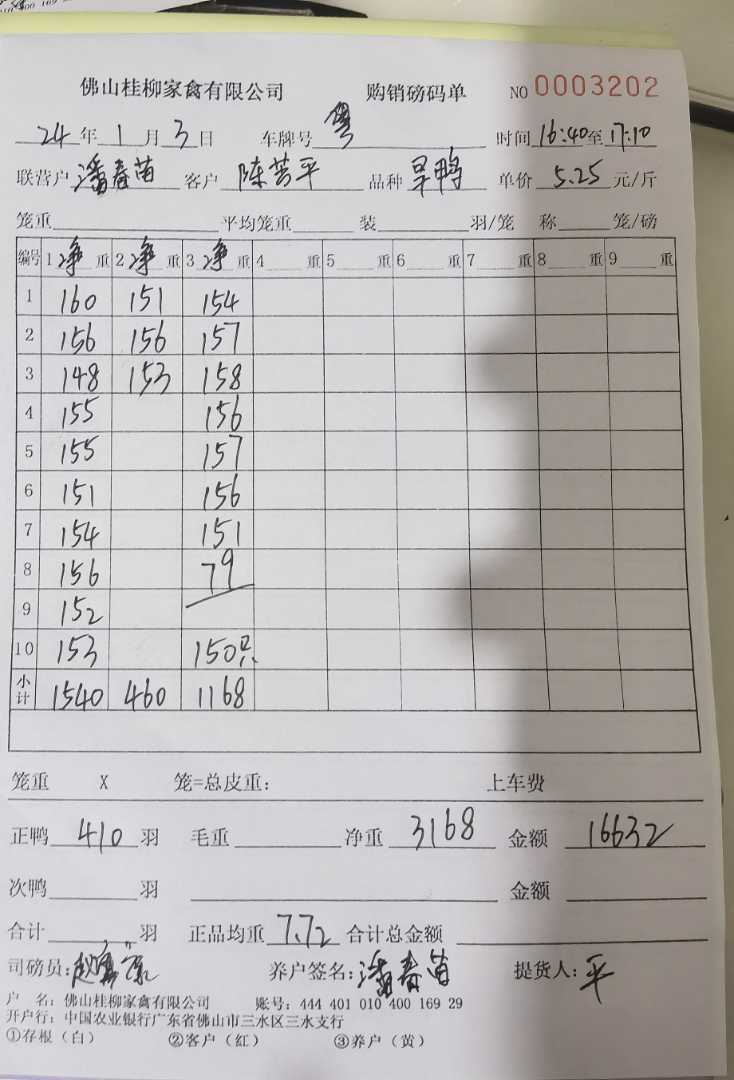 佛山桂柳家禽有限公司 购销磅码单 NO 0003202
24年1月3日 车牌号 粤 时间16:40至17:10
联营户 潘春苗 客户 陈苦平 品种 旱鸭 单价 5.25 元/斤
笼重 平均笼重 装 羽/笼 称 笼/磅
编号 1净重 2净重 3净重 4 重 5 重 6 重 7 重 8 重 9 重
1 160 151 154
2 156 156 157
3 148 153 158
4 155 156
5 155 157
6 151 156
7 154 151
8 156 79
9 152
10 153 150只
小计 1540 460 1168
笼重 X 笼=总皮重: 上车费
正鸭 410 羽 毛重 净重 3168 金额 16632
次鸭 羽 金额
合计 羽 正品均重 7.72 合计总金额
司磅员: 养户签名: 潘春苗 提货人: 平
户 名: 佛山桂柳家禽有限公司 账号: 444 401 010 400 169 29
开户行: 中国农业银行广东省佛山市三水区三水支行
①存根(白) ②客户(红) ③养户(黄)